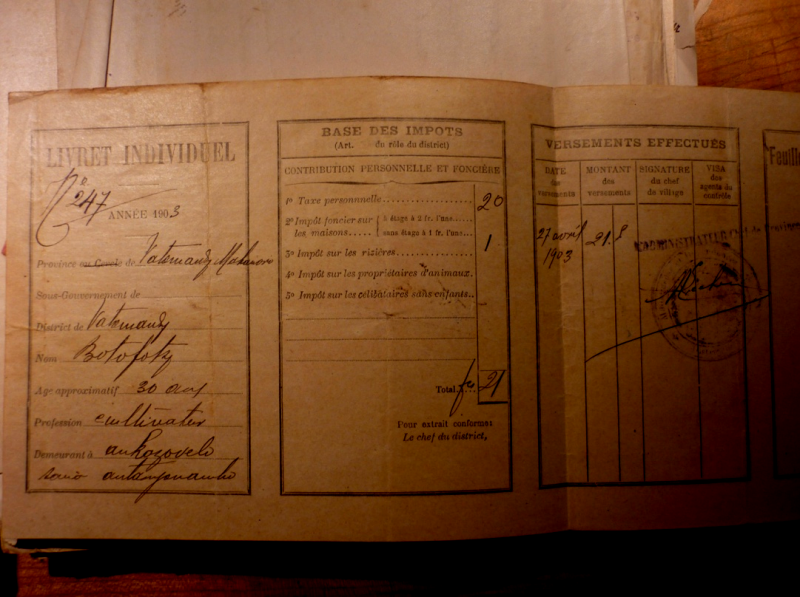 LIVRET INDIVIDUEL
No 247
ANNÉE 1903
Province ou Cercle de Vatomandy
Sous-Gouvernement de
District de Vatomandy
Nom Botofotsy
Age approximatif 30 ans
Profession cultivateur
Demeurant à
BASE DES IMPOTS
(Art. du rôle du district)
CONTRIBUTION PERSONNELLE ET FONCIÈRE
1º Taxe personnelle 20
2º Impôt foncier sur { à étage à 2 fr. l'une
les maisons { sans étage à 1 fr. l'une 1
3º Impôt sur les rizières
4º Impôt sur les propriétaires d'animaux.
5º Impôt sur les célibataires sans enfants
Total. fr 21
Pour extrait conforme:
Le chef du district,
VERSEMENTS EFFECTUÉS
DATE des versements
MONTANT des versements
SIGNATURE du chef de village
VISA des agents du contrôle
27 avril 1903
21.
L'ADMINISTRATEUR
Feuille